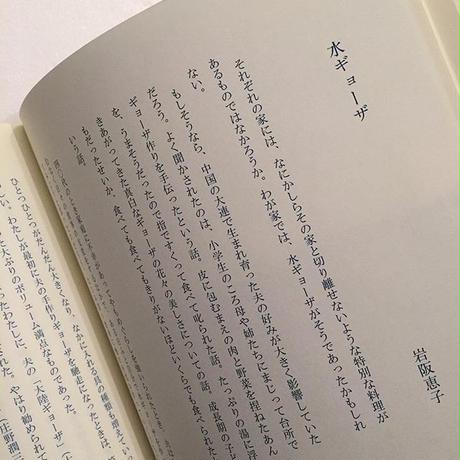 水ギョーザ
岩阪恵子
それぞれの家には、なにかしらその家と切り離せないような特別な料理が
あるものではなかろうか。わが家では、水ギョーザがそうであったかもしれ
ない。
もしそうなら、中国の大連で生まれ育った夫の好みが大きく影響していた
だろう。よく聞かされたのは、小学生のころ母や姉たちにまじって台所で
ギョーザ作りを手伝ったという話。皮に包むまえの肉と野菜を捏ねたあん
を、うまそうだったので指ですくって食べて叱られた話。たっぷりの湯に
きあがってきた真白なギョーザの花々の美しさについての話、成長期の子
もだったせいか、食べても食べてもきりがないほどいくらでも食べられた
いう話。
ひとつひとつがだんだん大きくなり、なかに入る具の種類も増えていっ
たボリューム満点なものであった。
わたしが最初に夫の手作りギョーザを馳走になったときは、
たわたしに、夫の「大陸ギョーザ」
やはり勧められて
庄野潤三